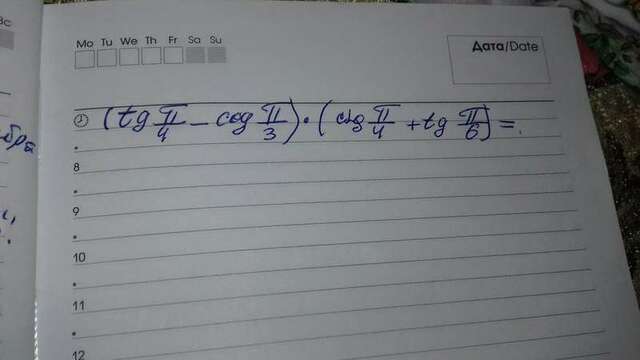 вс
Mo Tu We Th Fr Sa Su
Дата/Date
(tg π/4 - cos π/3) · (ctg π/4 + tg π/6) =
8
9
10
11
12